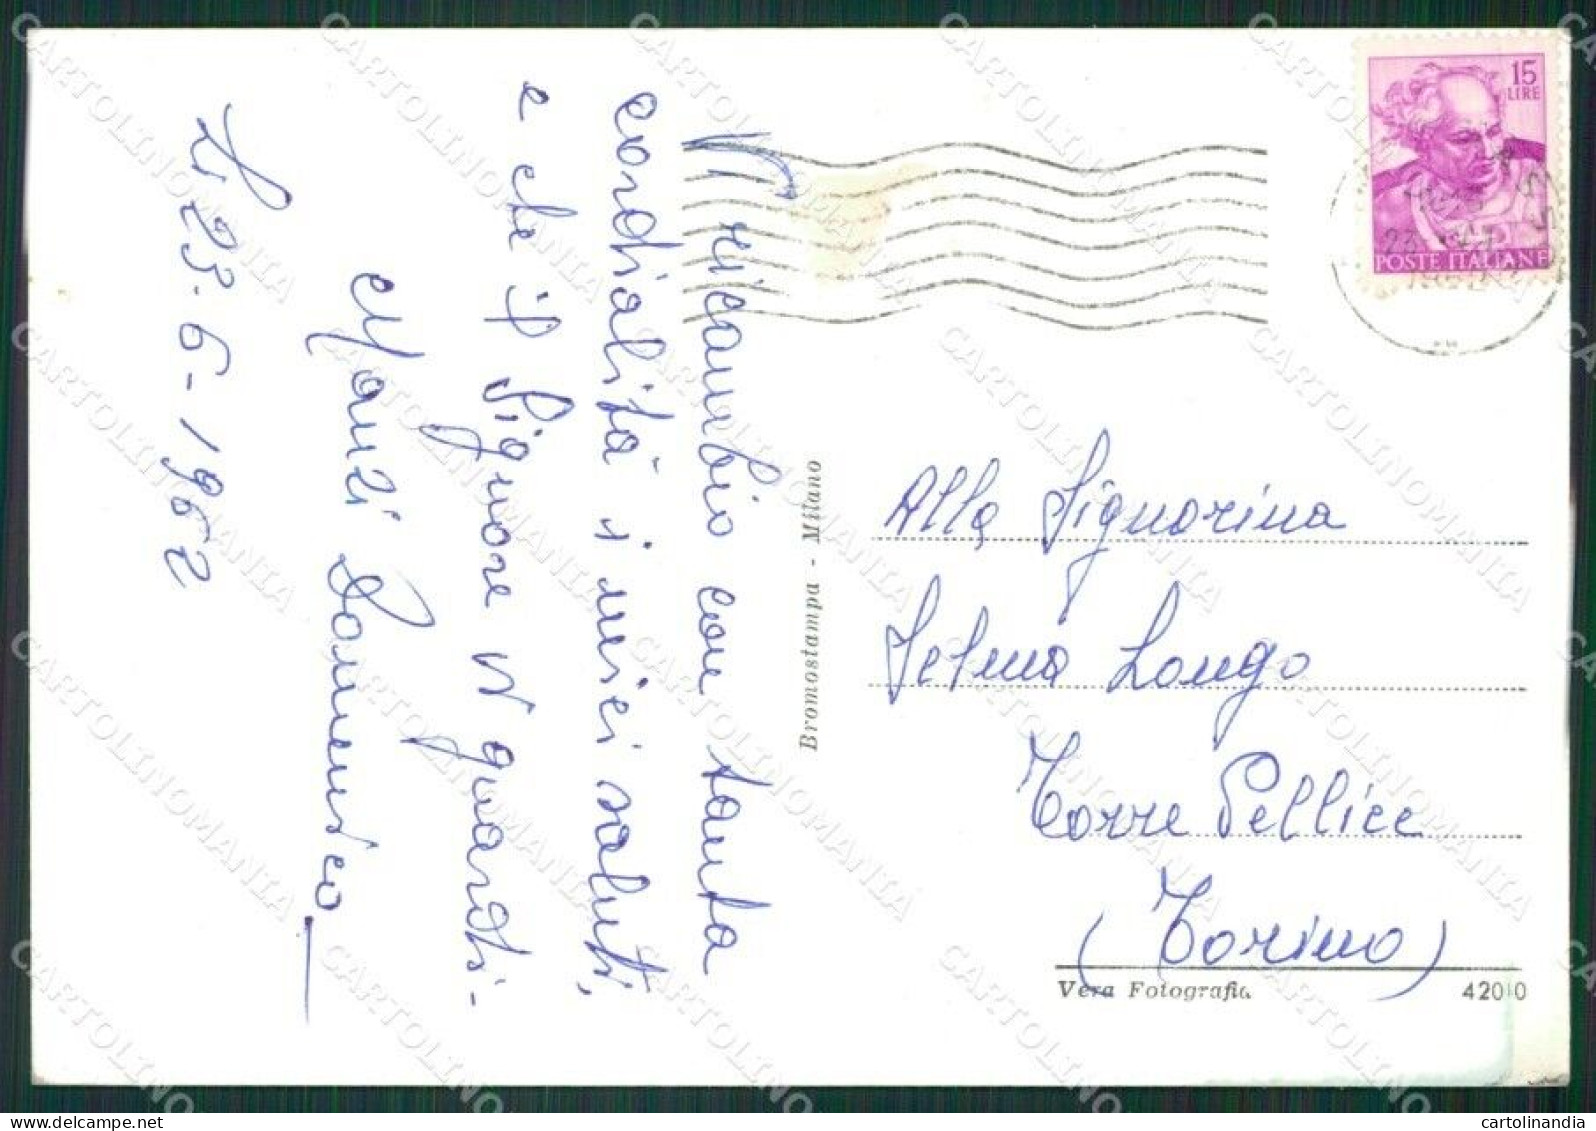 Vi ricambio con tanta
cordialità i miei saluti,
e che il Signore Vi guardi.
Domenico
li 23-6-1962
Bromostampa - Milano
15
LIRE
POSTE ITALIANE
Alla Signorina
Selma Longo
Torre Pellice
(Torino)
Vera Fotografia
42010
CARTOLINOMANIA
cartolinandia